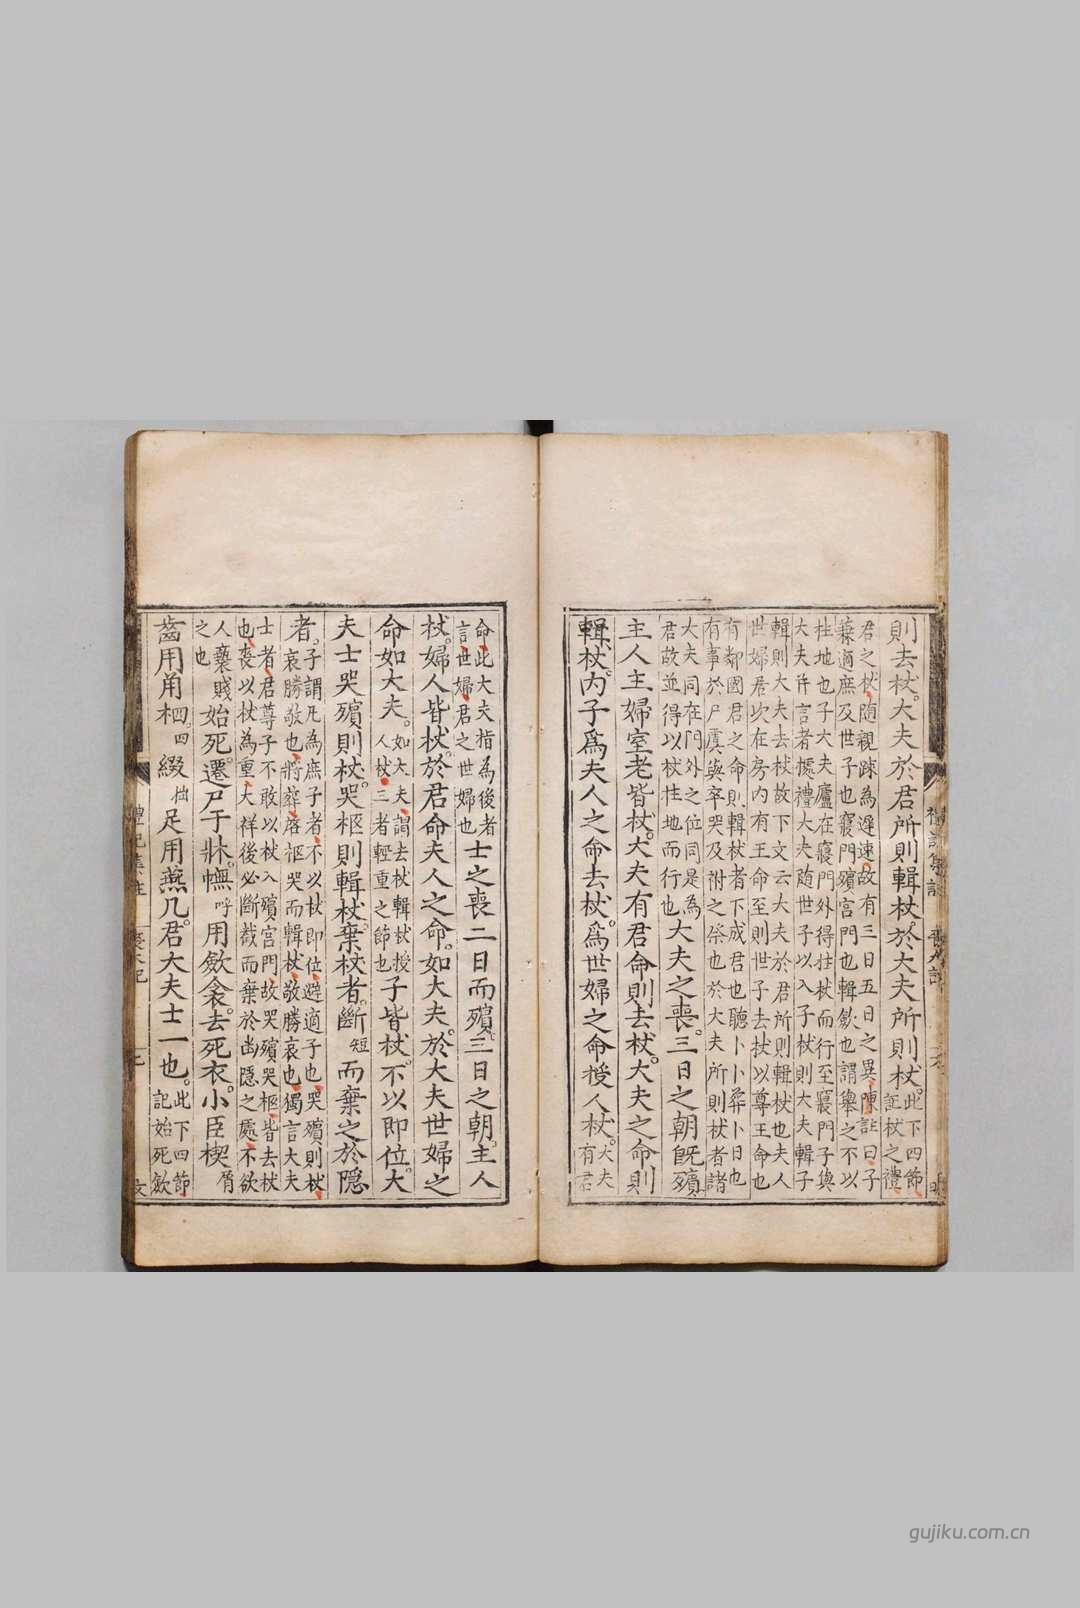 則去杖。大夫於君所則輯杖。於大夫所則杖。此下四節
記杖之禮
君之杖隨親疎為遲速故有三日五日之異陳註曰子
兼適庶及世子也寢門殯宮門也輯斂也謂舉之不以
柱地也子大夫廬在寢門外得拄杖而行至寢門子與
大夫并言者據禮大夫随世子以入子杖則大夫輯子
輯則大夫去杖故下文云大夫於君所則輯杖也夫人
世婦居次在房內有王命至則世子去杖以尊王命也
有鄰國君之命則輯杖者下成君也聽卜卜葬卜日也
有事於尸虞與卒哭及祔之祭也於大夫所則杖者諸
大夫同在門外之位同是為
君故並得以杖柱地而行也
大夫之喪。三日之朝旣殯
主人主婦室老皆杖。大夫有君命則去杖。大夫之命則
輯杖。內子爲夫人之命去杖。爲世婦之命授人杖。大夫
有君
命此大夫指為後者
言世婦君之世婦也
士之喪二日而殯。三日之朝。主人
杖。婦人皆杖。於君命夫人之命。如大夫。於大夫世婦之
命如大夫。如大夫謂去杖輯杖授
人杖三者輕重之節也
子皆杖。不以即位。大
夫士哭殯則杖。哭柩則輯杖。棄杖者。斷短而棄之於隱
者。子謂凡為庶子者不以杖即位避適子也哭殯則杖
哀勝敬也將葬啓柩哭而輯杖敬勝哀也獨言大夫
士者君尊子不敢以杖入殯宮門故哭殯哭柩皆去杖
也喪以杖為重大祥後必斷截而棄於幽隱之處不欲
人褻賤
之也
始死。遷尸于牀。幠呼用斂衾。去死衣。小臣楔屑
齒用角柶。四綴拙足用燕几。君大夫士一也。此下四節
記始死斂
禮記集註
喪大記
gujiku.com.cn